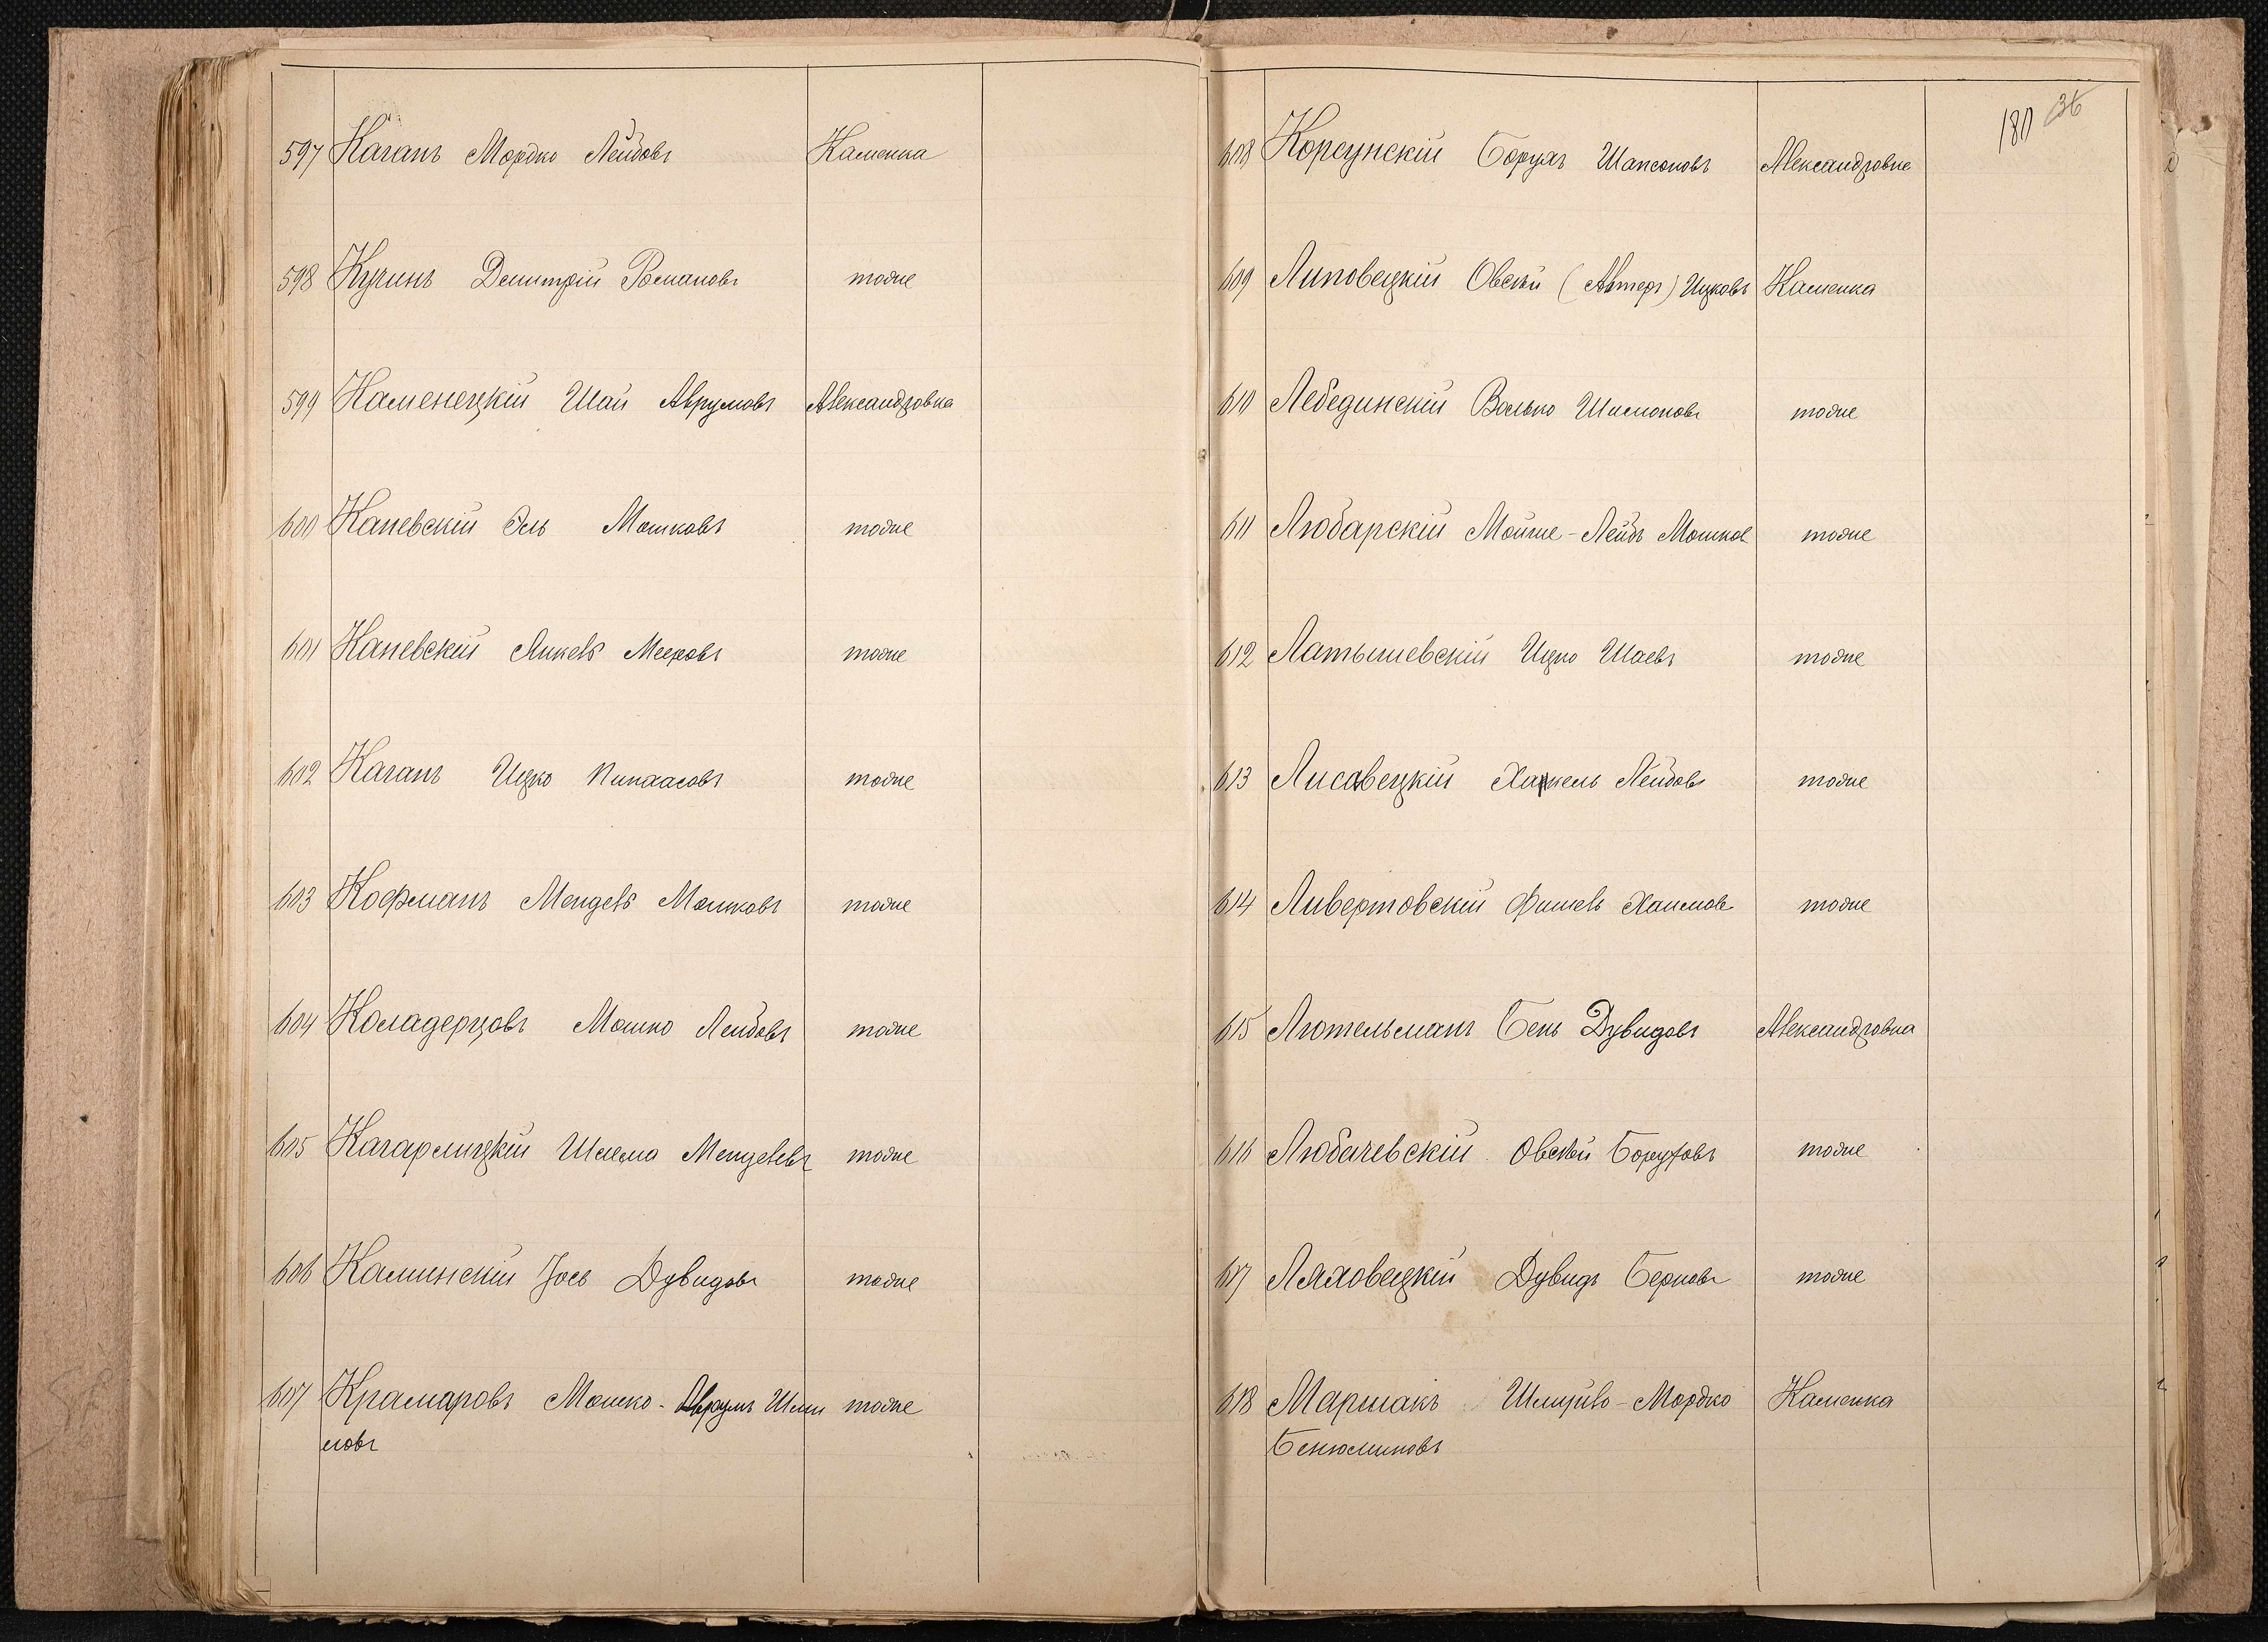 597 Каганъ Мордко Лейбовъ Каменка
598 Кучинъ Демитрій Романовъ тоже
599 Каменецкій Шая Аврумовъ Александровка
600 Каневскій Эль Мошковъ тоже
601 Каневскій Янкель Мееровъ тоже
602 Каганъ Ицко Пинхасовъ тоже
603 Кофманъ Мендель Мошковъ тоже
604 Коладерцовъ Мошко Лейбовъ тоже
605 Кагарлицкій Шлема Менделевъ тоже
606 Каминскій Іось Дувидовъ тоже
607 Крамаровъ Мошко-Аврумъ Шли тоже
мовъ
180 36
608 Корсунскій Борухъ Шапсоновъ Александровке
609 Липовецкій Овсѣй (Автеръ) Ицковъ Каменка
610 Лебединскій Волько Шимоновъ тоже
611 Любарскій Мойше-Лейбъ Мошков тоже
612 Латышевскій Ицко Шаевъ тоже
613 Лисовецкій Хаскель Лейбовъ тоже
614 Ливертовскій Фишель Хаимовъ тоже
615 Лютельманъ Бень Дувидовъ Александровка
616 Любачевскій Овсѣй Боруховъ тоже
617 Ляховецкій Дувидъ Берковъ тоже
618 Маршакъ Шмуйло-Мордко Каменка
Бенюминовъ